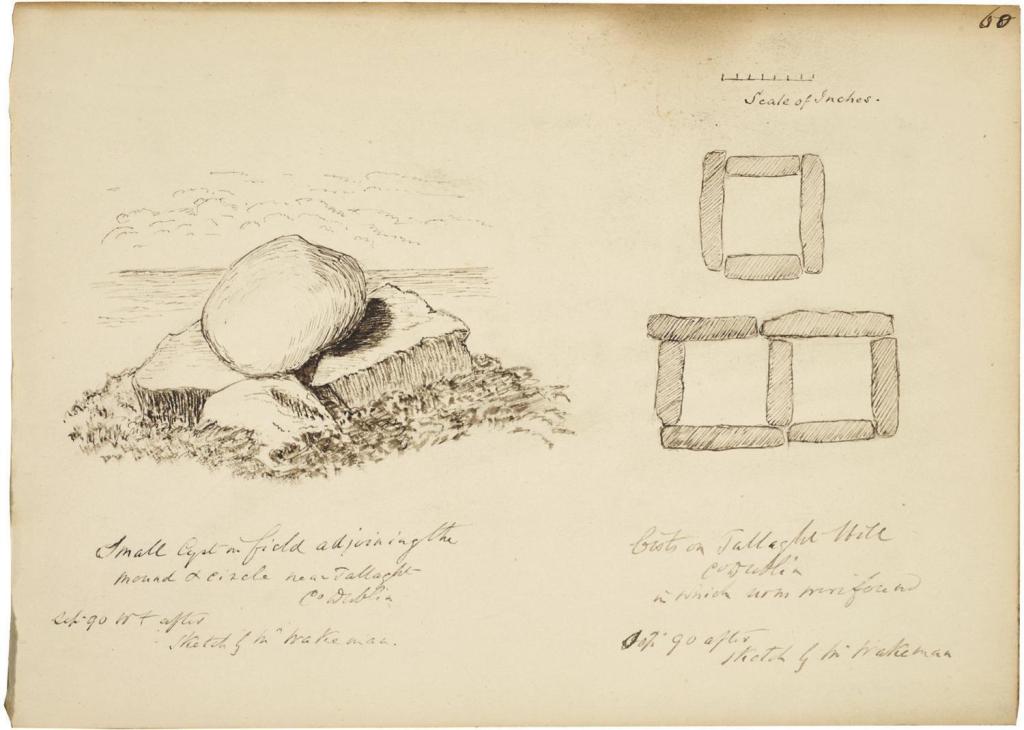 60
Scale of Inches.
Small Cyst in field adjoining the
mound & circle near Tallaght
Co Dublin
Sep: 90 W F after
Sketch by Mr Wakeman.
Cists on Tallaght Hill
Co Dublin
in which urns were found
Sep: 90 after
sketch by Mr Wakeman